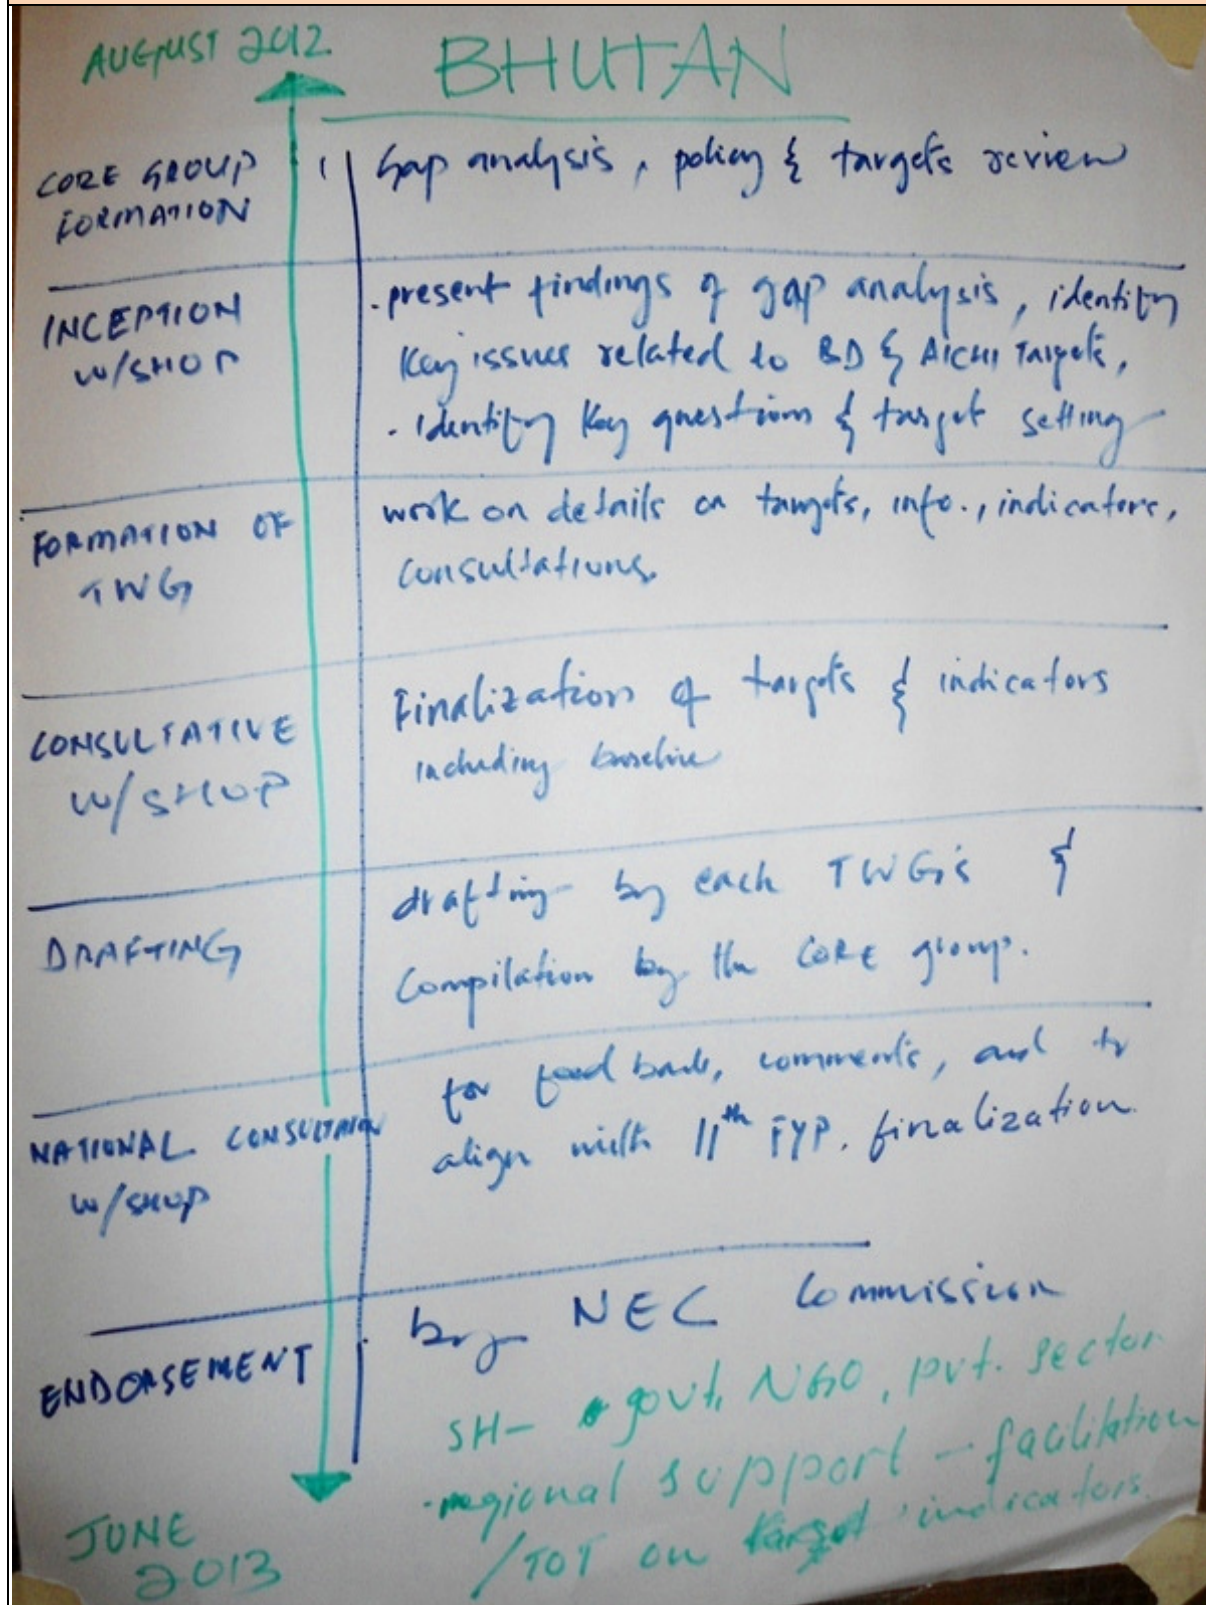 AUGUST 2012
BHUTAN
CORE GROUP
FORMATION
Gap analysis, policy & targets review
INCEPTION
W/SHOP
. present findings of gap analysis, identify
Key issues related to BD & AICHI Targets,
. Identify Key questions & target setting
FORMATION OF
TWG
work on details on targets, info., indicators,
consultations.
CONSULTATIVE
W/SHOP
Finalization of targets & indicators
including baseline
DRAFTING
drafting by each TWG's &
Compilation by the CORE group.
NATIONAL CONSULTAION
W/SHOP
for feed back, comments, and to
align with 11th FYP. finalization.
ENDORSEMENT
by NEC Commission
SH- govt. NGO, pvt. sector
- regional support - facilitation
/TOT on target indicators.
JUNE
2013